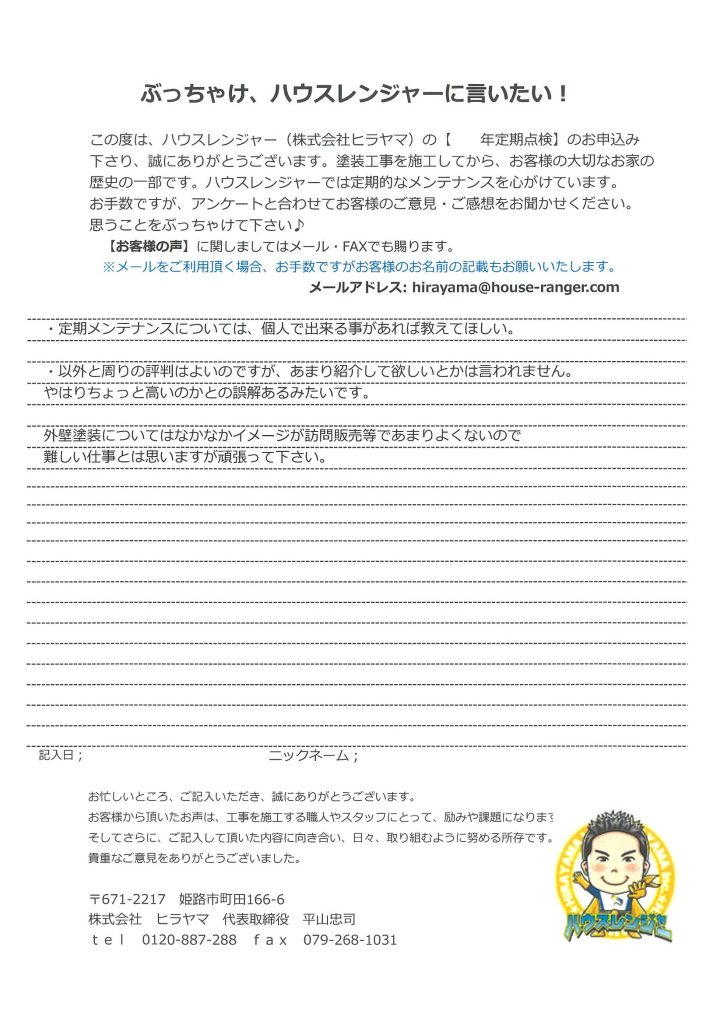 ぶっちゃけ、ハウスレンジャーに言いたい！
この度は、ハウスレンジャー（株式会社ヒラヤマ）の【　　年定期点検】のお申込み
下さり、誠にありがとうございます。塗装工事を施工してから、お客様の大切なお家の
歴史の一部です。ハウスレンジャーでは定期的なメンテナンスを心がけています。
お手数ですが、アンケートと合わせてお客様のご意見・ご感想をお聞かせください。
思うことをぶっちゃけて下さい♪
【お客様の声】に関しましてはメール・FAXでも賜ります。
※メールをご利用頂く場合、お手数ですがお客様のお名前の記載もお願いいたします。
メールアドレス: hirayama@house-ranger.com
・定期メンテナンスについては、個人で出来る事があれば教えてほしい。
・以外と周りの評判はよいのですが、あまり紹介して欲しいとかは言われません。
やはりちょっと高いのかとの誤解あるみたいです。
外壁塗装についてはなかなかイメージが訪問販売等であまりよくないので
難しい仕事とは思いますが頑張って下さい。
記入日；　ニックネーム；
お忙しいところ、ご記入いただき、誠にありがとうございます。
お客様から頂いたお声は、工事を施工する職人やスタッフにとって、励みや課題になります
そしてさらに、ご記入して頂いた内容に向き合い、日々、取り組むように努める所存です。
貴重なご意見をありがとうございました。
〒671-2217　姫路市町田166-6
株式会社　ヒラヤマ　代表取締役　平山忠司
ｔｅｌ　0120-887-288　ｆａｘ　079-268-1031
HIRAYAMA
ハウスレンジャー